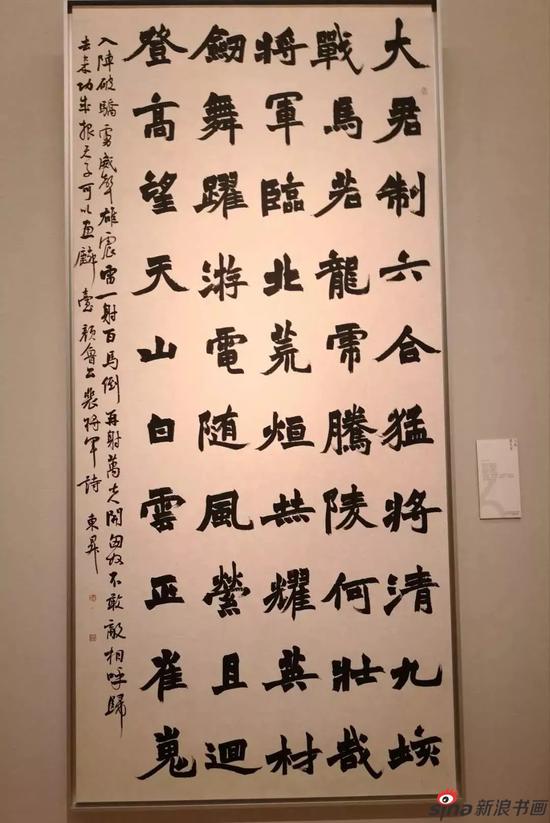 大君制六合猛将清九垓
戰馬若龍虎騰陵何壯哉
将軍臨北荒烜赫耀英材
劒舞躍游電随風縈且迴
登高望天山白雲正崔嵬
入陣破驕虜威聲雄震雷一射百馬倒再射萬夫開匈奴不敢敵相呼歸
去来功成報天子可以画麟臺 顏魯公裴将軍詩 東昇
sina新浪书画